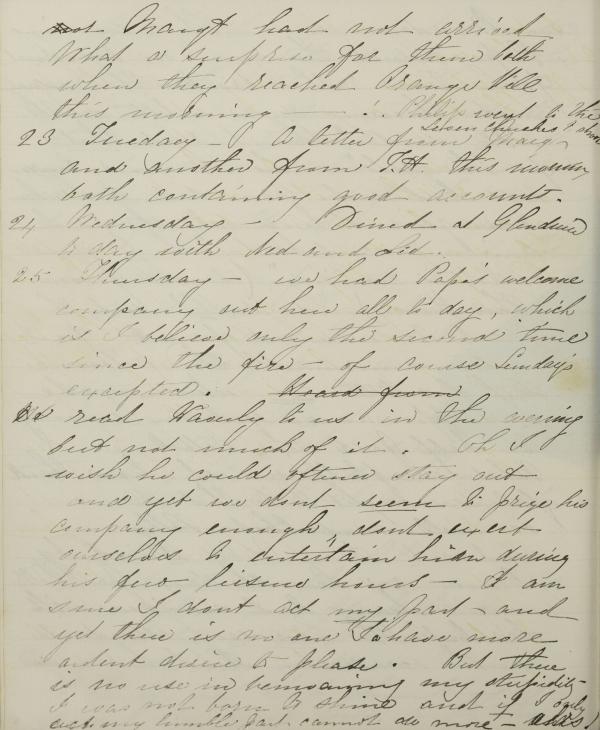 not Margt had not arrived
What a surprise for them both
when they reached Orange Vlle
this morning — : Philip went to the
Seven Churches & above
23 Tuesday — A letter from Marg-
and another from T.H. this morning
both containing good accounts.
24 Wednesday — Dined at Glenduin
to day with Ned and Lid.
25 Thursday — we had Papa's welcome
company out here all to day, which
is I believe only the second time
since the fire — of course Sunday's
excepted. Heard from
He read Waverly to us in the evening
but not much of it. Oh I
wish he could oftener stay out
and yet we dont seem to prize his
company enough, dont exert
ourselves to entertain him during
his few leisure hours — I am
sure I dont act my part — and
yet there is no one to have more
ardent desire to please. But there
is no use in bemoaning my stupidity —
I was not born to shine and if I only
act my humble part cannot do more — alas!